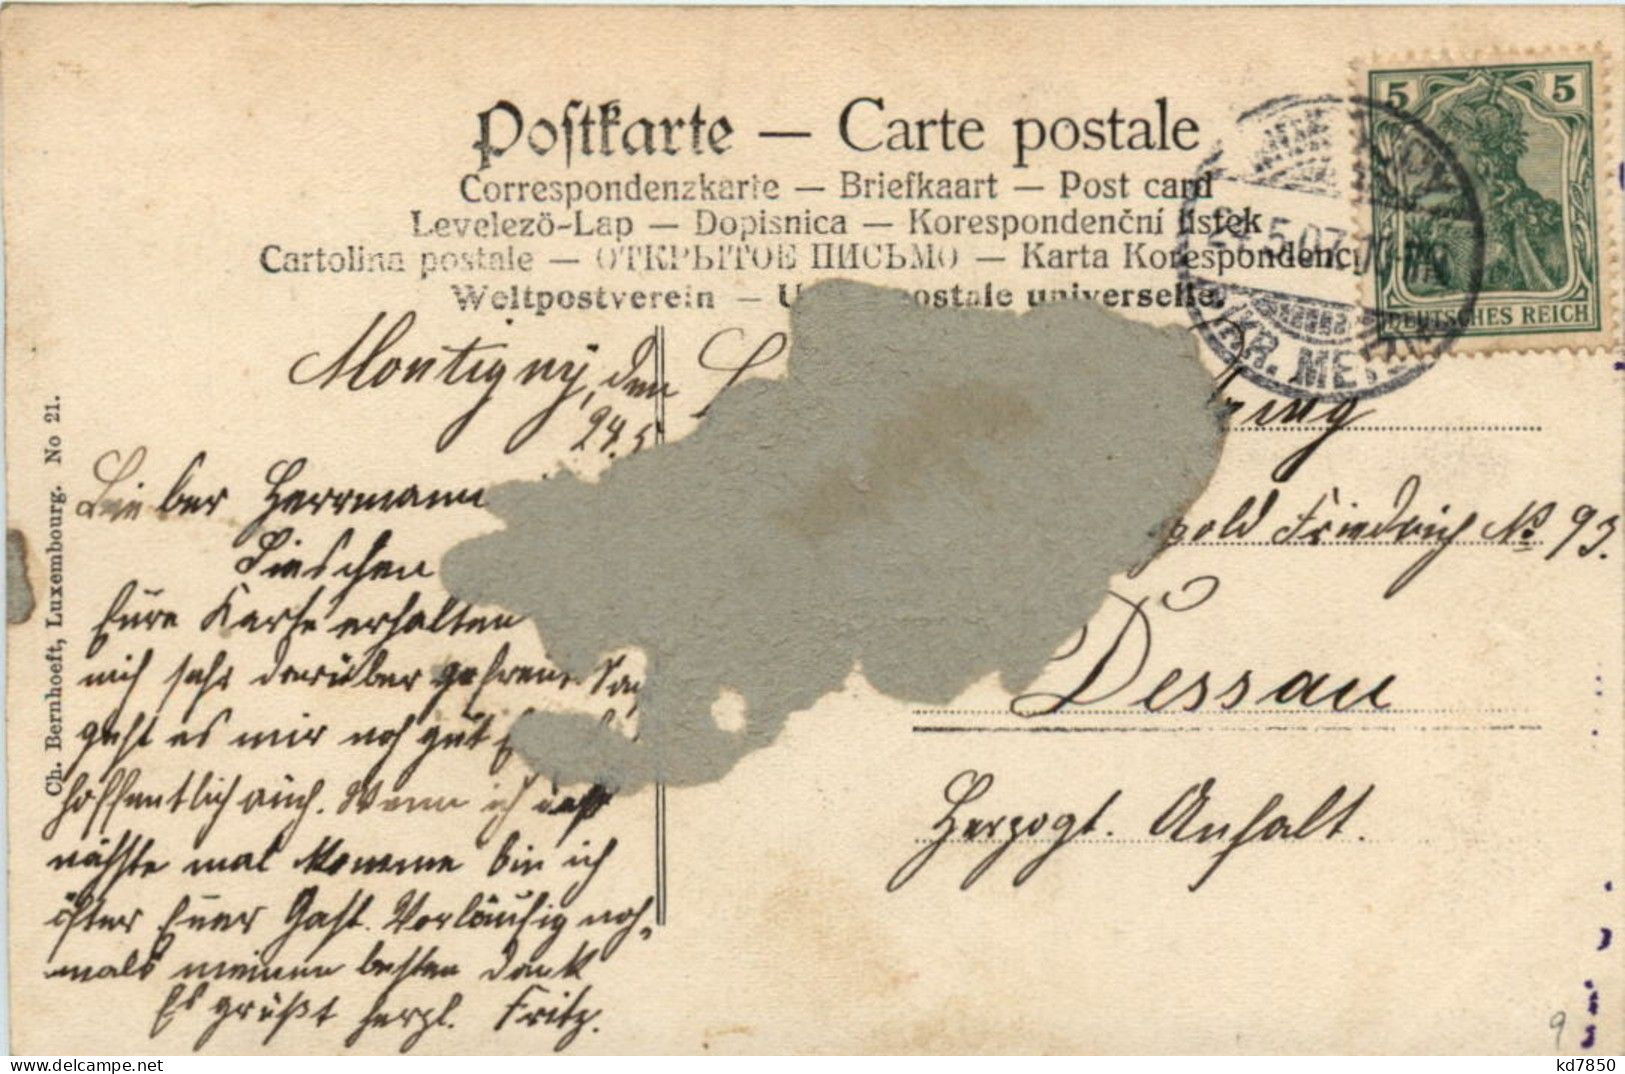 Postkarte — Carte postale
Correspondenzkarte — Briefkaart — Post card
Levelezö-Lap — Dopisnica — Korespondenční lístek
Cartolina postale — ОТКРЫТОЕ ПИСЬМО — Karta Korespondenc
Weltpostverein — postale universelle.
5 5
DEUTSCHES REICH
5.07
KR. MET
Ch. Bernhoeft, Luxembourg. No 21.
Montigny, den
24.5
Lieber Herrmann
Lieschen
Eure Karte erhalten
mich sehr darüber gefreut
geht es mir noch gut
hoffentlich auch. Wenn ich das
nächste mal komme bin ich
öfter Euer Gast. Vorläufig noch-
mals meinen besten Dank
Es grüßt herzl. Fritz.
pold Friedrich No 93.
Dessau
Herzogt. Anhalt.
9
kd7850